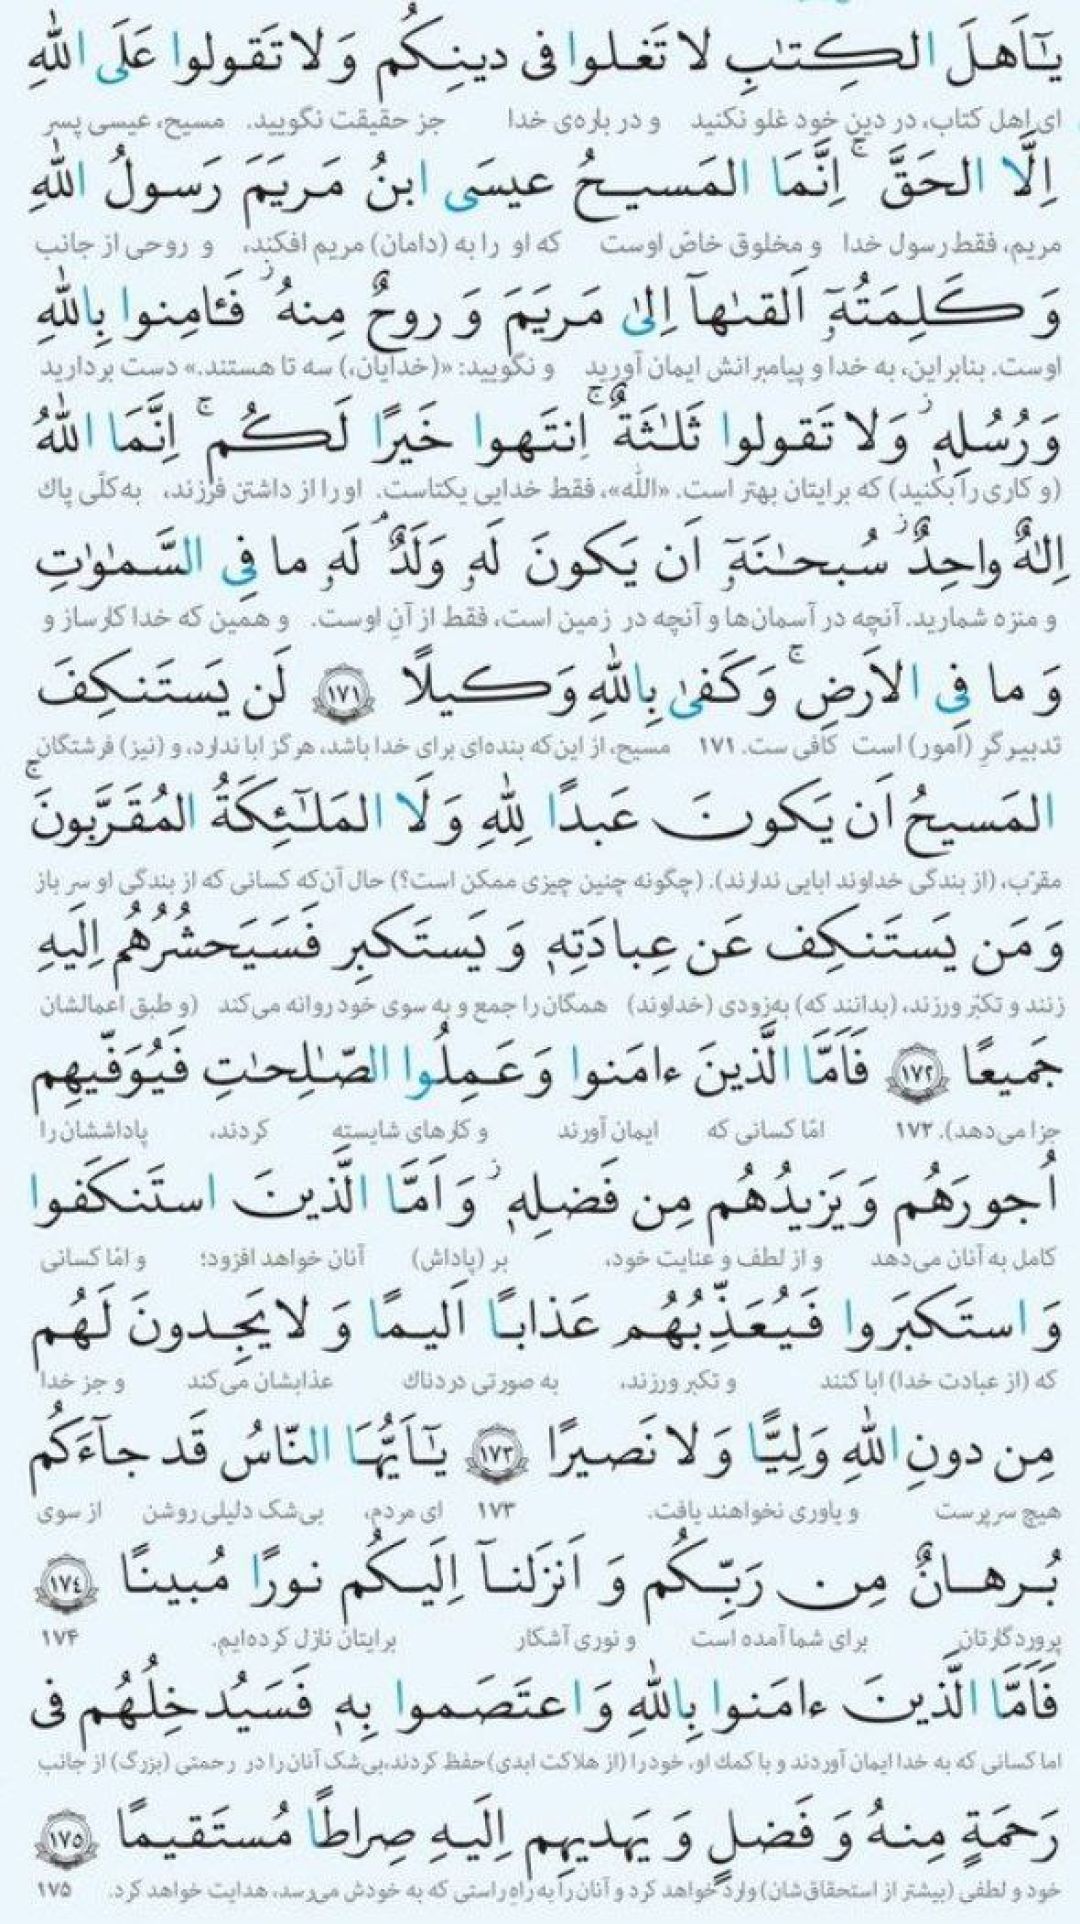 يٰۤاَهلَ الكِتٰبِ لا تَغلوا فى دينِكُم وَ لا تَقولوا عَلَى اللّٰهِ
ای اهل کتاب، در دین خود غلو نکنید و در باره‌ی خدا جز حقیقت نگویید. مسیح، عیسی پسر
اِلَّا الحَقَّ ۚ اِنَّمَا المَسيحُ عيسَى ابنُ مَريَمَ رَسولُ اللّٰهِ
مریم، فقط رسول خدا و مخلوق خاصّ اوست که او را به (دامان) مریم افکند، و روحی از جانب
وَ كَلِمَتُهٗۤ اَلقٰىهاۤ اِلىٰ مَريَمَ وَ روحٌ مِنهُ ۖ فَـٔامِنوا بِاللّٰهِ
اوست. بنابراین، به خدا و پیامبرانش ایمان آورید و نگویید: «(خدایان،) سه تا هستند.» دست بردارید
وَ رُسُلِهٖ ۖ وَ لا تَقولوا ثَلٰثَةٌ ۚ اِنتَهوا خَيرًا لَكُم ۚ اِنَّمَا اللّٰهُ
(و کاری را بکنید) که برایتان بهتر است. «اللّٰه»، فقط خدایی یکتاست. او را از داشتن فرزند، به‌کلّی پاك
اِلٰهٌ واحِدٌ ۖ سُبحٰنَهٗۤ اَن يَكونَ لَهٗ وَلَدٌ ۘ لَهٗ ما فِى السَّمٰوٰتِ
و منزه شمارید. آنچه در آسمان‌ها و آنچه در زمین است، فقط از آنِ اوست. و همین که خدا کارساز و
وَ ما فِى الاَرضِ ۚ وَ كَفىٰ بِاللّٰهِ وَكيلًا ١٧١ لَن يَستَنكِفَ
تدبیرگرِ (امور) است کافی ست. ۱۷۱ مسیح، از این‌که بنده‌ای برای خدا باشد، هرگز ابا ندارد، و (نیز) فرشتگان
المَسيحُ اَن يَكونَ عَبدًا لِلّٰهِ وَ لَا المَلٰۤئِكَةُ المُقَرَّبونَ ۚ
مقرّب، (از بندگی خداوند ابایی ندارند). (چگونه چنین چیزی ممکن است؟) حال آن‌که کسانی که از بندگی او سر باز
وَ مَن يَستَنكِف عَن عِبادَتِهٖ وَ يَستَكبِر فَسَيَحشُرُهُم اِلَيهِ
زنند و تکبّر ورزند، (بدانند که) به‌زودی (خداوند) همگان را جمع و به سوی خود روانه می‌کند (و طبق اعمالشان
جَميعًا ١٧٢ فَاَمَّا الَّذينَ ءامَنوا وَ عَمِلُوا الصّٰلِحٰتِ فَيُوَفّيهِم
جزا می‌دهد). ۱۷۲ امّا کسانی که ایمان آورند و کارهای شایسته کردند، پاداششان را
اُجورَهُم وَ يَزيدُهُم مِن فَضلِهٖ ۖ وَ اَمَّا الَّذينَ استَنكَفوا
کامل به آنان می‌دهد و از لطف و عنایت خود، بر (پاداش) آنان خواهد افزود؛ و امّا کسانی
وَ استَكبَروا فَيُعَذِّبُهُم عَذابًا اَليمًا وَ لا يَجِدونَ لَهُم
که (از عبادت خدا) ابا کنند و تکبر ورزند، به صورتی دردناك عذابشان می‌کند و جز خدا
مِن دونِ اللّٰهِ وَلِيًّا وَ لا نَصيرًا ١٧٣ يٰۤاَيُّهَا النّاسُ قَد جاۤءَكُم
هیچ سرپرست و یاوری نخواهند یافت. ۱۷۳ ای مردم، بی‌شک دلیلی روشن از سوی
بُرهانٌ مِن رَبِّكُم وَ اَنزَلناۤ اِلَيكُم نورًا مُبينًا ١٧٤
پروردگارتان برای شما آمده است و نوری آشکار برایتان نازل کرده‌ایم. ۱۷۴
فَاَمَّا الَّذينَ ءامَنوا بِاللّٰهِ وَ اعتَصَموا بِهٖ فَسَيُدخِلُهُم فى
اما کسانی که به خدا ایمان آوردند و با کمك او، خود را (از هلاکت ابدی) حفظ کردند، بی‌شک آنان را در رحمتی (بزرگ) از جانب
رَحمَةٍ مِنهُ وَ فَضلٍ وَ يَهديهِم اِلَيهِ صِراطًا مُستَقيمًا ١٧٥
خود و لطفی (بیشتر از استحقاق‌شان) وارد خواهد کرد و آنان را به راهِ راستی که به خودش می‌رسد، هدایت خواهد کرد. ۱۷۵